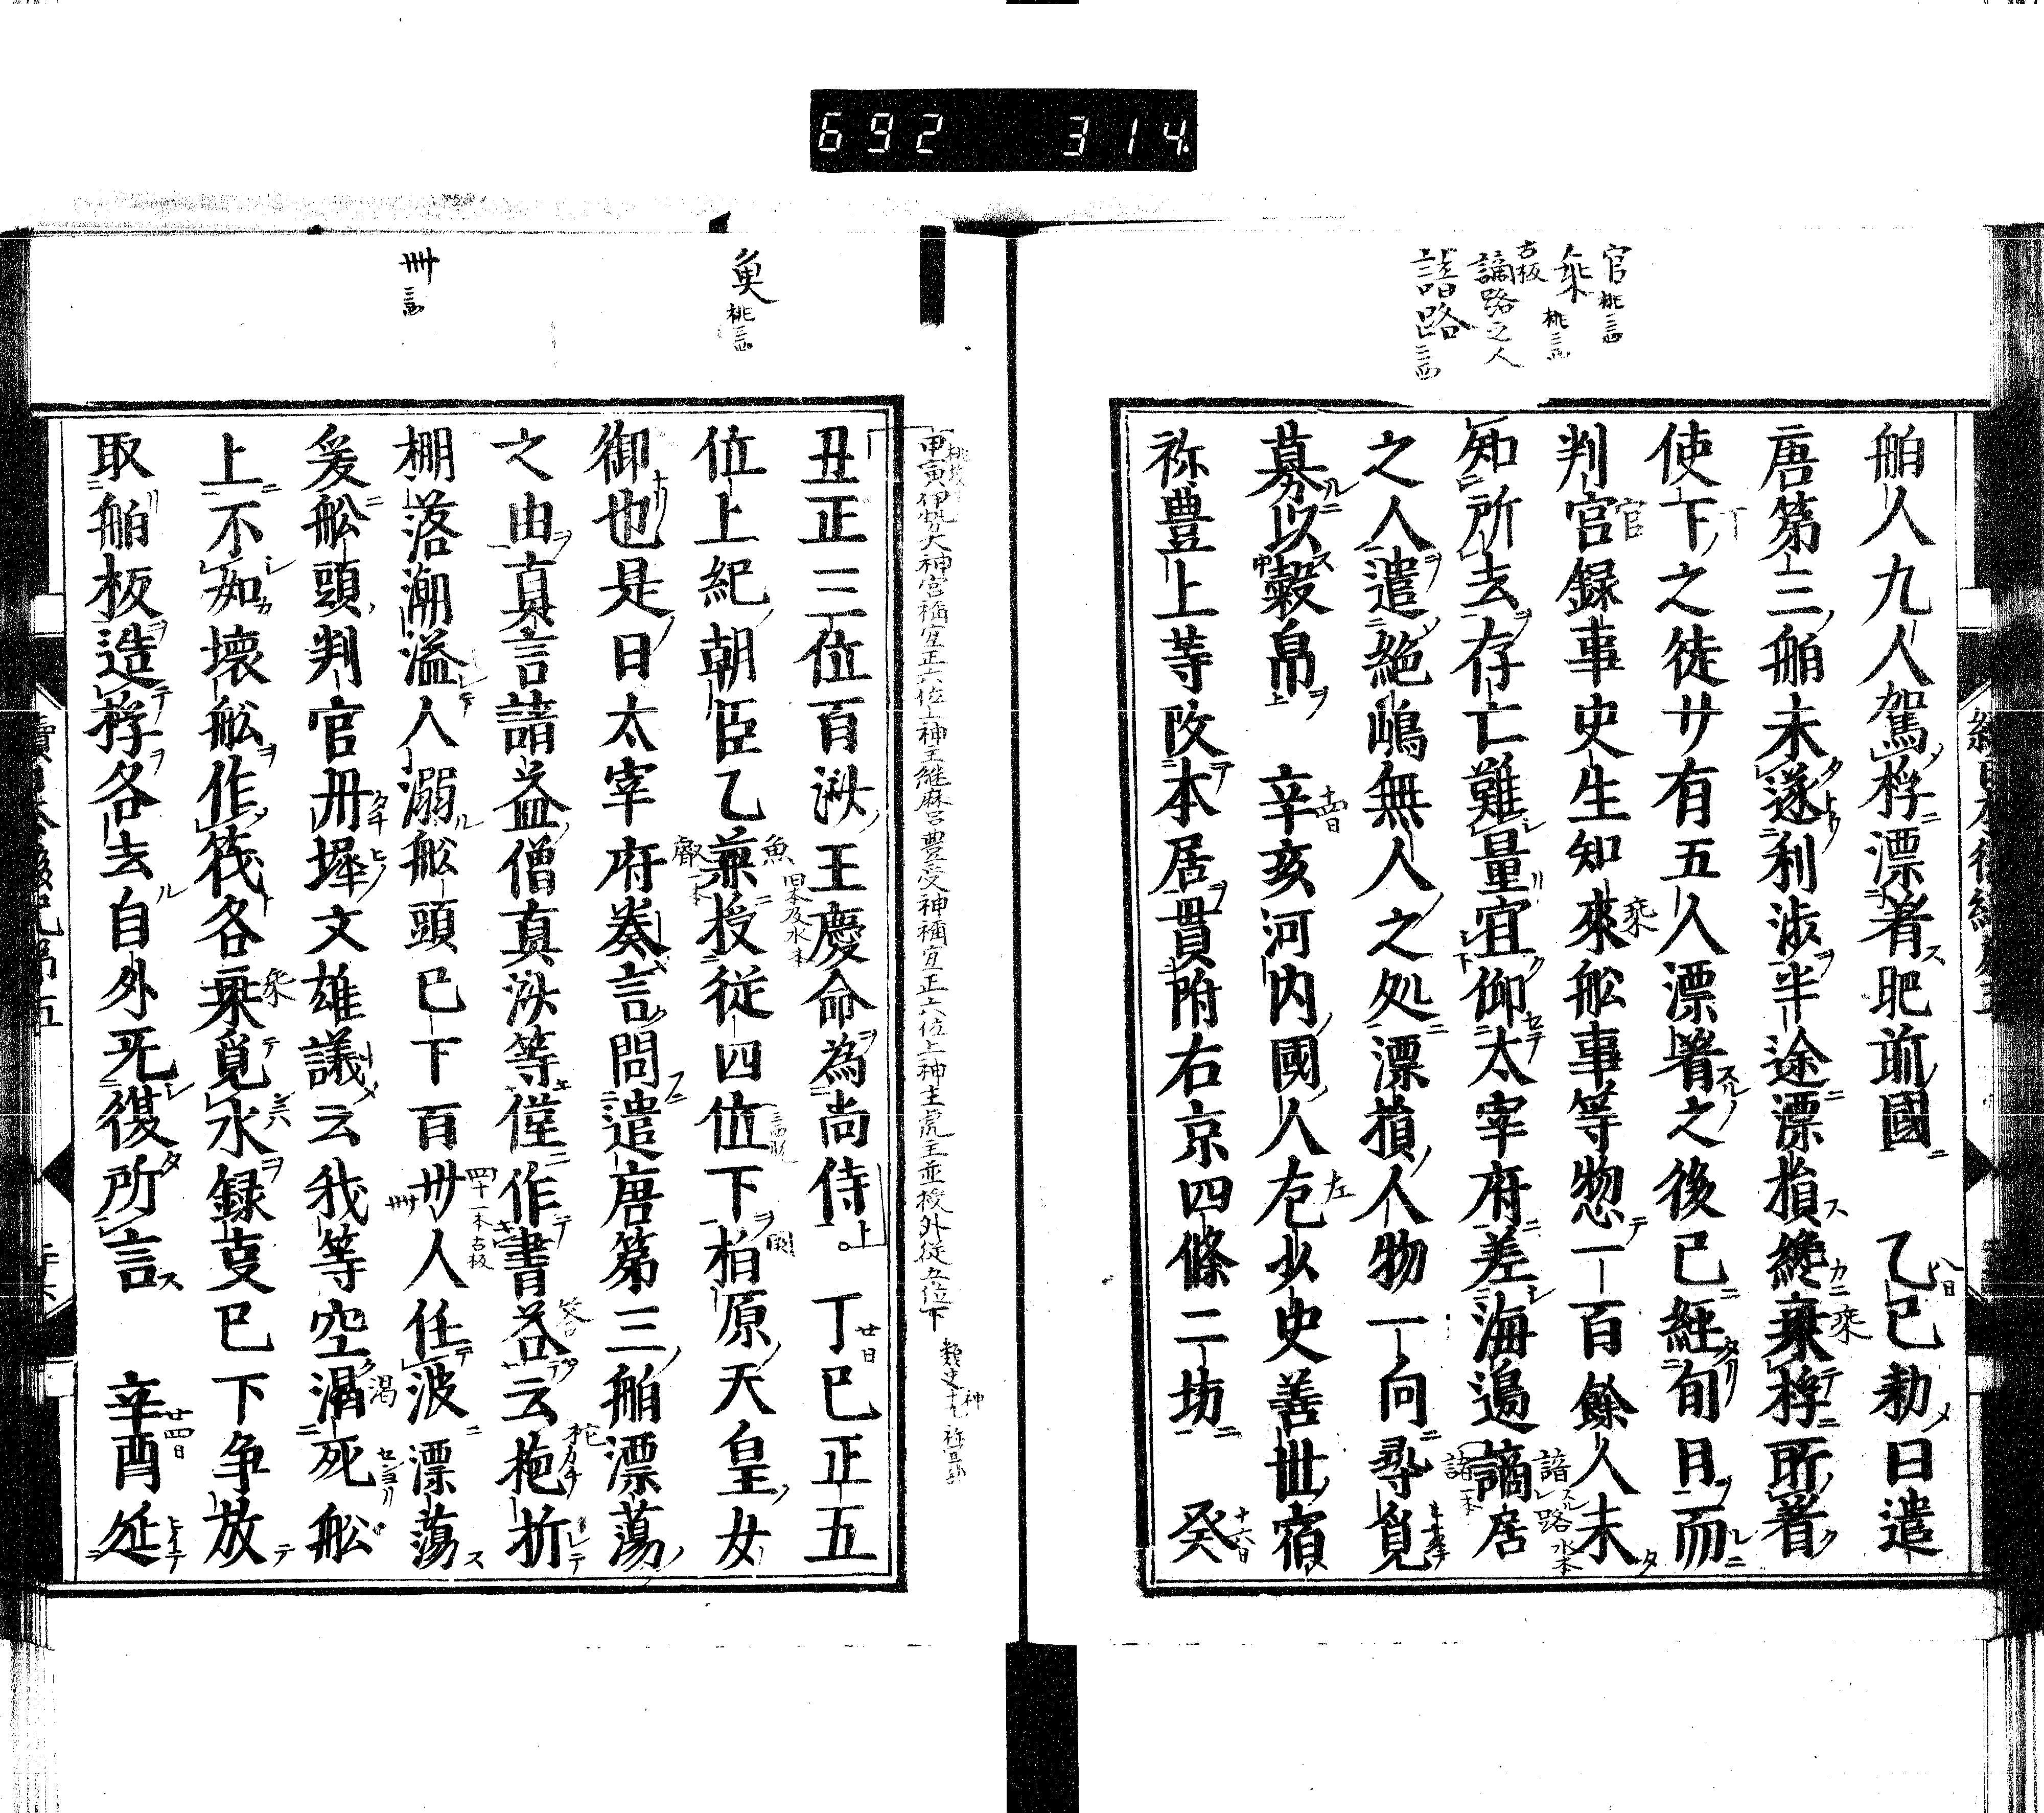 692 314
官 桃
桃
古板
謫路之人
諳路
舶人九人駕桴漂着肥前國 乙巳勅曰遣
唐第三舶未遂利渉半途漂損纔乗桴所着
使下之徒廿有五人漂着之後已經旬月而
判官録事史生知來舩事等惣一百餘人未
知所去存亡難量宜仰太宰府差海邊謫居
之人遣絶嶋無人之処漂損人物一向尋覓
募以穀帛 辛亥河内國人左少史善世宿
祢豊上等改本居貫附右京四條二坊 癸
八日
十四日
十六日
官
乗
乗
左
諳 路 水本
甲寅伊勢大神宮祢宜正六位上神主継麻呂豊受神祢宜正六位上神主虎主並授外従五位下
卌
奥 桃
丑正三位百済王慶命為尚侍 丁巳正五
位上紀朝臣乙兼授従四位下柏原天皇女
御也是日太宰府奏言問遣唐第三舶漂蕩
之由真言請益僧真済等僅作書荅云柂折
棚落潮溢人溺舩頭已下百卅人任波漂蕩
爰舩頭判官丹墀文雄議云我等空渇死舩
上不如壊舩作筏各乗覓水録事已下争放
取舶板造桴各去自外无復所言 辛酉延
廿日
廿四日
魚
旧本及水本
四十一本古板
答
渇